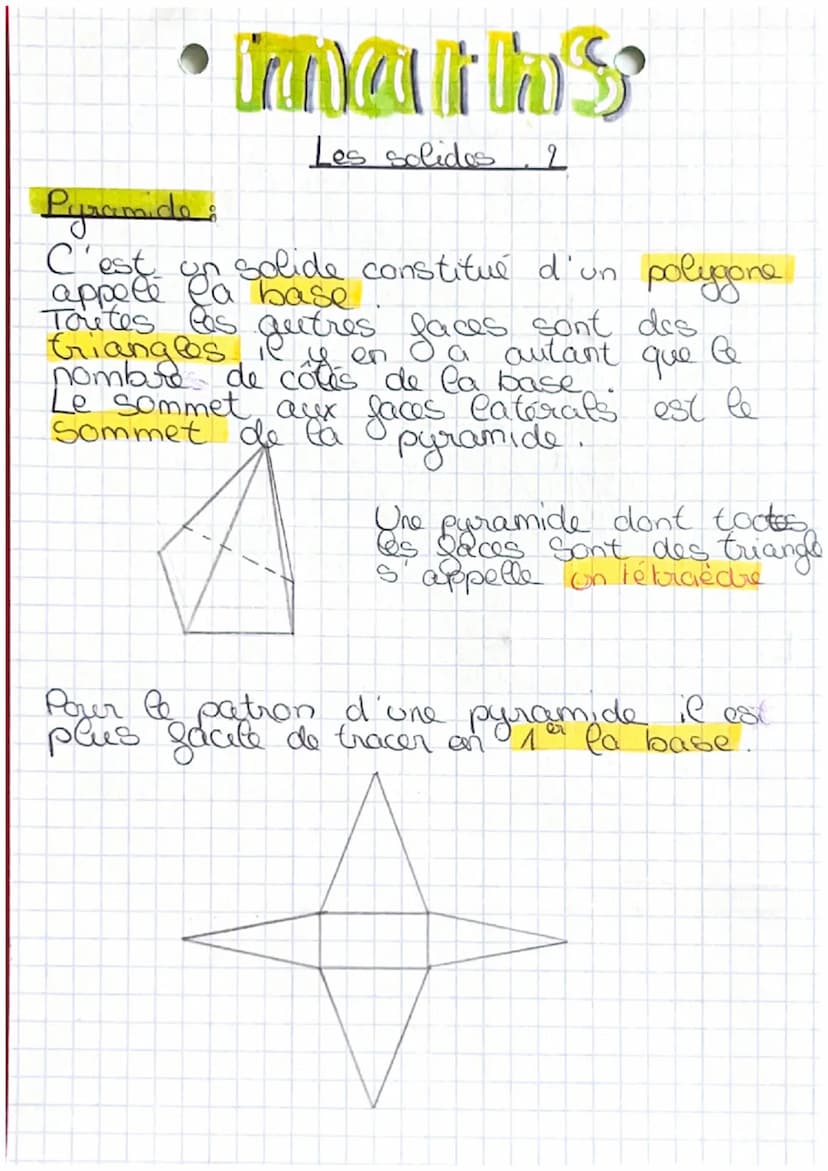 maths
Les solides . 2
Pyramide :
C'est un solide constitué d'un polygone
appelé la base.
Toutes les autres faces sont des
triangles il y en a autant que le
nombre de côtés de la base.
Le sommet aux faces latérals est le
sommet de la pyramide.
Une pyramide dont toutes
les faces sont des triangle
s'appelle un tétraèdre
Pour le patron d'une pyramide il est
plus facile de tracer en 1er la base.